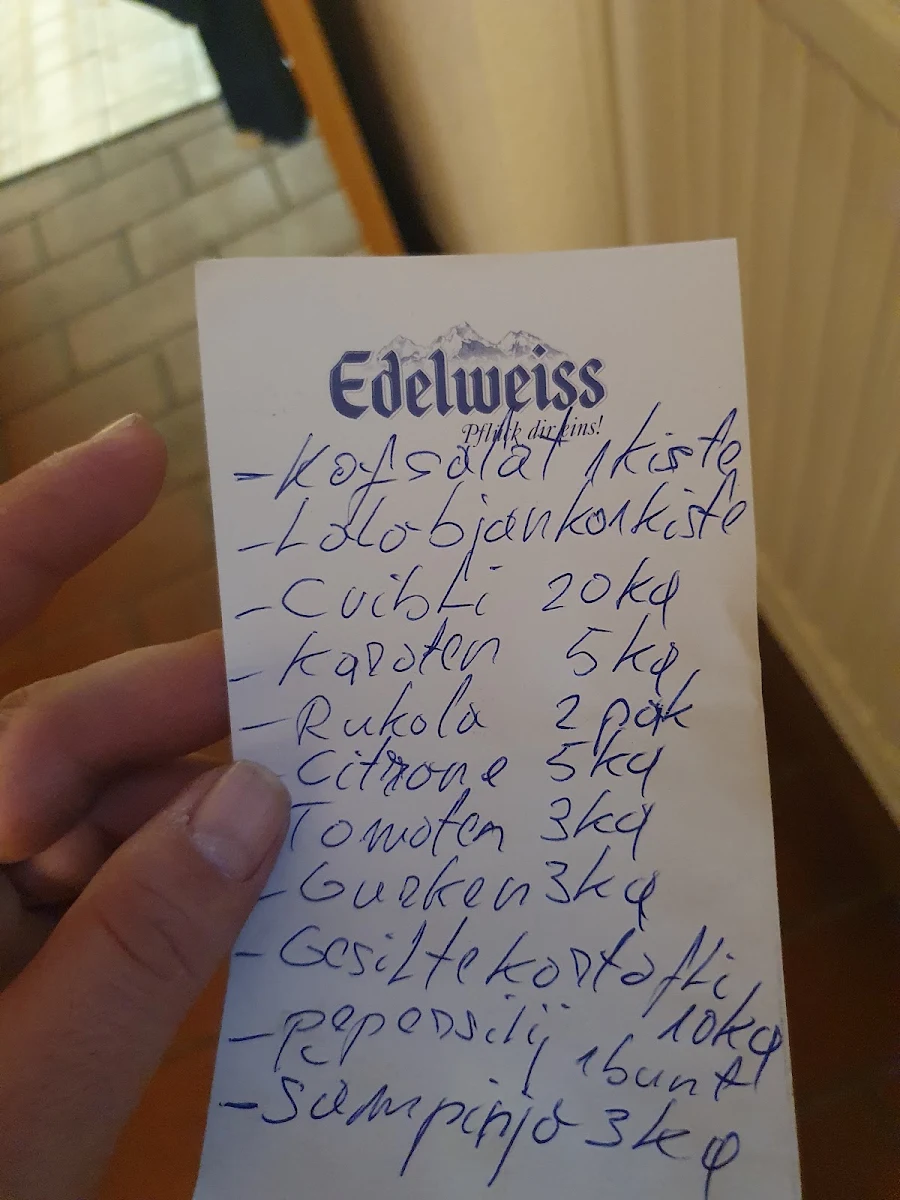 Edelweiss
Pflück dir eins!
- Kofsalat 1kiste
- Lolobjanko1kiste
- Cvibli 20kg
- Karoten 5kg
- Rukola 2 pak
- Citrone 5kg
Tomaten 3kg
- Gurken 3kg
- Gesiltekortofli
10kg
- pepersilij 1bunt
- Sampinjo 3kg